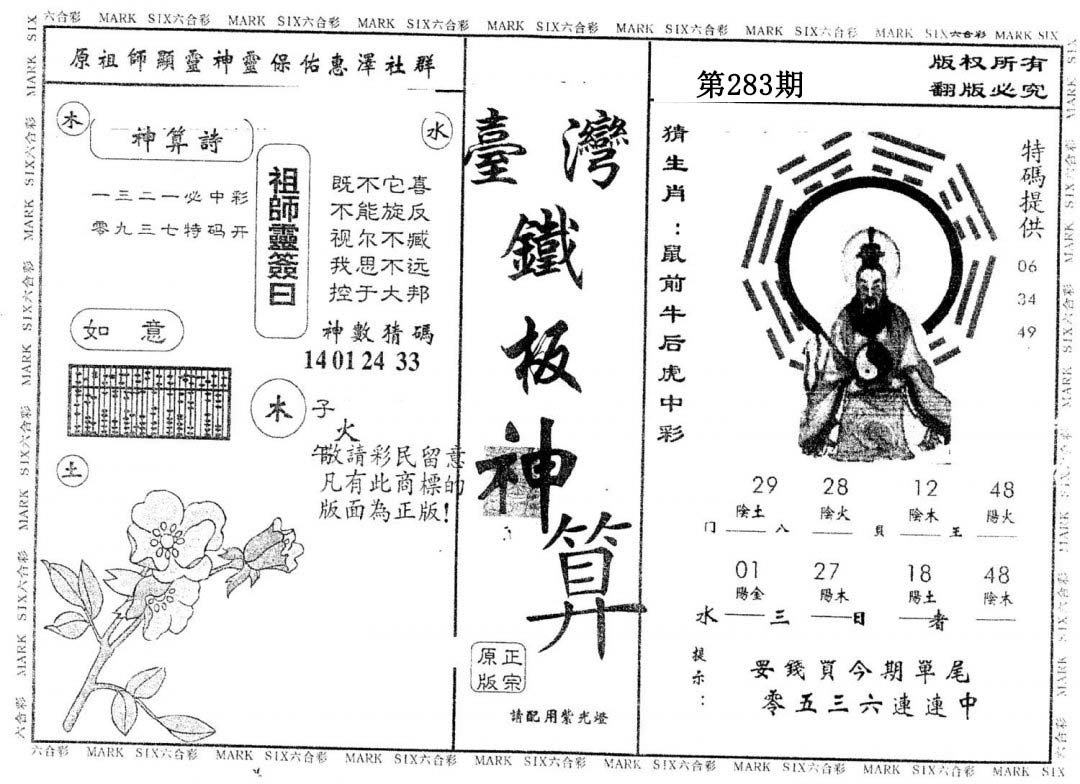 MARK SIX六合彩 MARK SIX六合彩 MARK SIX六合彩 MARK SIX六合彩 MARK SIX六合彩 MARK SIX六合彩 MARK SIX六合彩 MARK SIX
原祖師顯靈神靈保佑惠澤社群
木
神算詩
水
一三二一必中彩
零九三七特码开
祖師靈簽曰
既不它喜
不能旋反
视尔不臧
我思不远
控于大邦
神數猜碼
14 01 24 33
如意
木
子
火
午
敬請彩民留意
凡有此商標的
版面為正版!
土
臺灣
鐵
板
神
算
正宗
原版
請配用紫光燈
第283期
版权所有
翻版必究
猜生肖:鼠前牛后虎中彩
特碼提供
06
34
49
29 28 12 48
陰土 陰火 陰木 陽火
门 八 貝 王
01 27 18 48
陽金 陽木 陽土 陰木
水 三 日 者
提示:
妥錢買今期單尾
零五三六連連中
六合彩 MARK SIX六合彩 MARK SIX六合彩 MARK SIX六合彩 MARK SIX六合彩 MARK SIX六合彩 MARK SIX六合彩 MARK SIX六合彩 MARK SIX